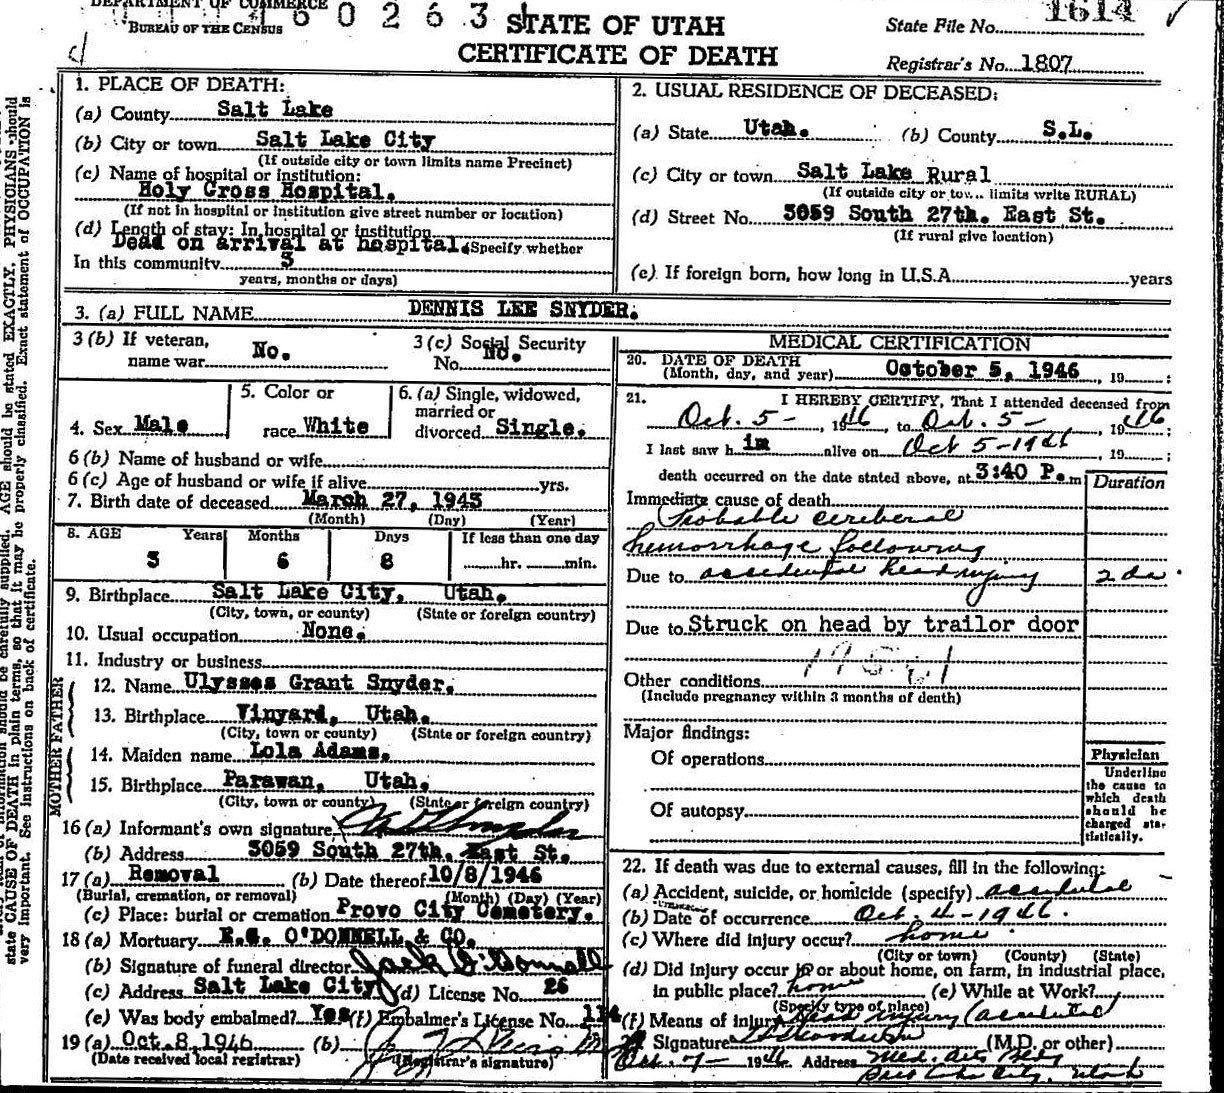 DEPARTMENT OF COMMERCE
BUREAU OF THE CENSUS
6 0 2 6 3
STATE OF UTAH
CERTIFICATE OF DEATH
State File No. 1614
Registrar's No. 1807
1. PLACE OF DEATH:
(a) County Salt Lake
(b) City or town Salt Lake City
(If outside city or town limits name Precinct)
(c) Name of hospital or institution:
Holy Cross Hospital.
(If not in hospital or institution give street number or location)
(d) Length of stay: In hospital or institution
Dead on arrival at hospital. (Specify whether
In this community 3
years, months or days)
2. USUAL RESIDENCE OF DECEASED:
(a) State Utah. (b) County S.L.
(c) City or town Salt Lake Rural
(If outside city or tow.. limits write RURAL)
(d) Street No. 3059 South 27th. East St.
(If rural give location)
(e). If foreign born, how long in U.S.A. years
3. (a) FULL NAME DENNIS LEE SNYDER.
3 (b) If veteran,
name war No.
3 (c) Social Security
No. No.
4. Sex Male
5. Color or
race White
6. (a) Single, widowed,
married or
divorced Single.
6 (b) Name of husband or wife
6 (c) Age of husband or wife if alive yrs.
7. Birth date of deceased March 27, 1943
(Month) (Day) (Year)
8. AGE Years Months Days If less than one day
3 6 8 hr. min.
9. Birthplace Salt Lake City, Utah.
(City, town, or county) (State or foreign country)
10. Usual occupation None.
11. Industry or business
FATHER
12. Name Ulysses Grant Snyder.
13. Birthplace Vinyard, Utah.
(City, town or county) (State or foreign country)
MOTHER
14. Maiden name Lola Adams.
15. Birthplace Parawan, Utah.
(City, town or county) (State or foreign country)
16 (a) Informant's own signature
(b) Address 3059 South 27th. East St.
17 (a) Removal (b) Date thereof 10/8/1946
(Burial, cremation, or removal) (Month) (Day) (Year)
(c) Place: burial or cremation Provo City Cemetery.
18 (a) Mortuary E.G. O'DONNELL & CO.
(b) Signature of funeral director Jack O'Donnell
(c) Address Salt Lake City (d) License No. 26
(e) Was body embalmed? Yes (f) Embalmer's License No. 114
19 (a) Oct. 8, 1946 (b)
(Date received local registrar) (Registrar's signature)
MEDICAL CERTIFICATION
20. DATE OF DEATH
(Month, day, and year) October 5, 1946, 19 ;
21. I HEREBY CERTIFY, That I attended deceased from
Oct. 5 -, 1946, to Oct. 5 -, 1946;
I last saw h im alive on Oct 5 - 1946, 19 ;
death occurred on the date stated above, at 3:40 P. m
Duration
Immediate cause of death
Probable cereberal
hemorrhage following
Due to accidental head injury 2 da.
Due to Struck on head by trailor door
Other conditions
(Include pregnancy within 3 months of death)
Major findings:
Of operations
Of autopsy
Physician
Underline
the cause to
which death
should be
charged sta-
tistically.
22. If death was due to external causes, fill in the following:
(a) Accident, suicide, or homicide (specify) accidental
(b) Date of occurrence Oct. 4 - 1946.
(c) Where did injury occur? home
(City or town) (County) (State)
(d) Did injury occur in or about home, on farm, in industrial place,
in public place? home (e) While at Work?
(Specify type of place)
(f) Means of injury Head injury (accidental
Signature (M.D. or other)
Oct. 7 - 1946 Address Med. Arts Bldg
Salt Lake City. Utah
AGE should be stated EXACTLY. PHYSICIANS should
state CAUSE OF DEATH in plain terms, so that it may be properly classified. Exact statement of OCCUPATION is
very important. See instructions on back of certificate.